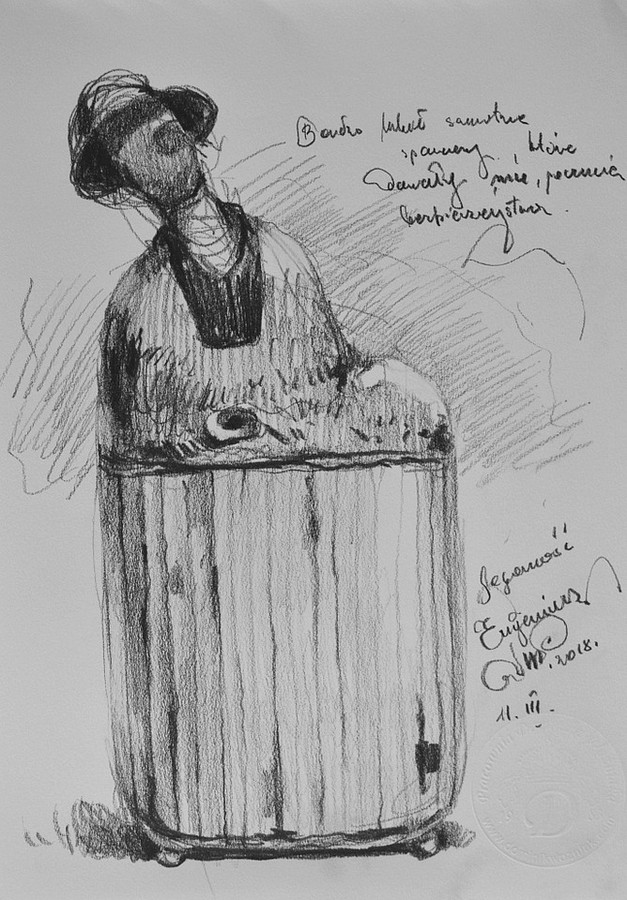 Bardzo lubił samotne
spacery, które
dawały mu, poczucie
bezpieczeństwa.
Jegomość
Eugeniusz
2018.
11. III.